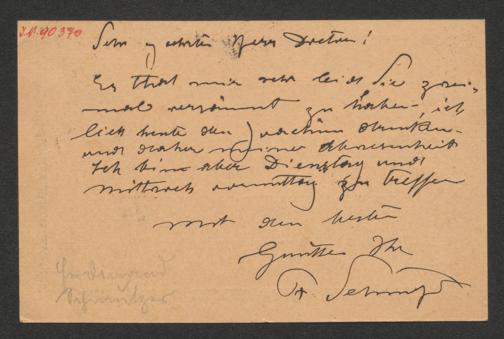 I.N. 90390
Sehr geehrter Herr Doctor!
Es thut mir sehr leid Sie zwei-
mal versäumt zu haben, ich
ließ heute den Joachim
und daher meine Abwesenheit
Ich bin aber Dienstag und
Mittwoch vormittag zu treffen
mit den besten
Grüßen Ihr
F. Schmutzer
Ferdinand
Schmutzer